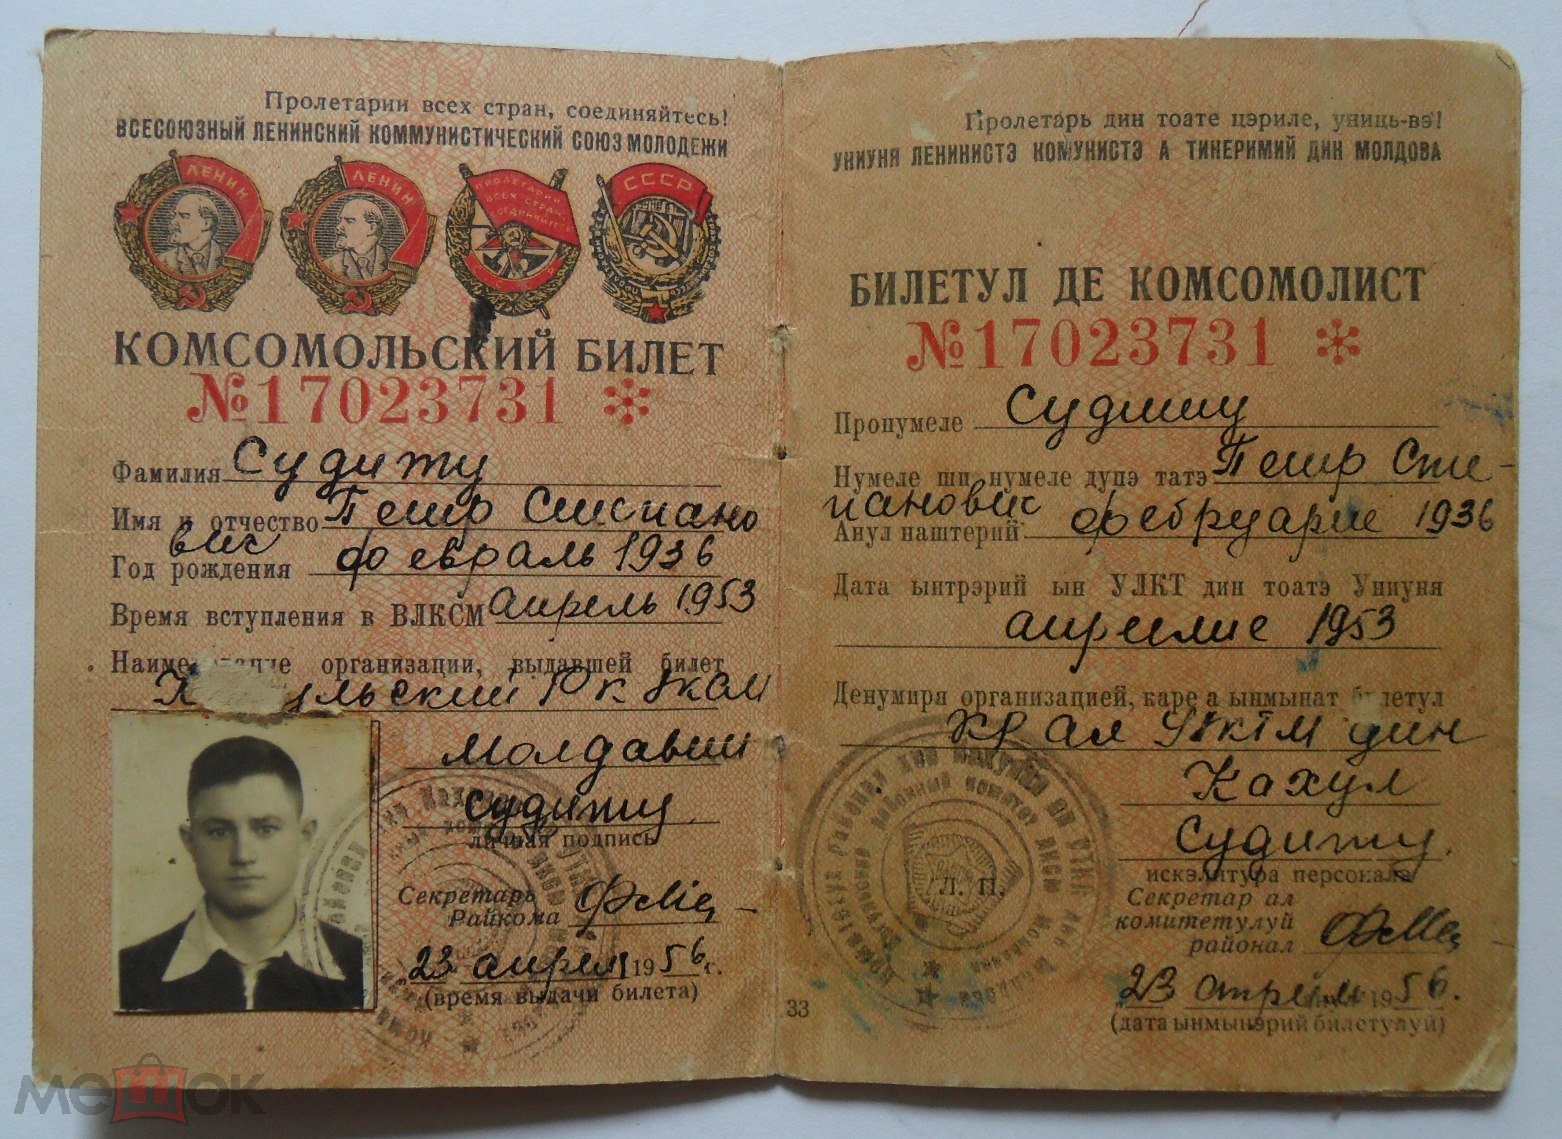 Пролетарии всех стран, соединяйтесь!
ВСЕСОЮЗНЫЙ ЛЕНИНСКИЙ КОММУНИСТИЧЕСКИЙ СОЮЗ МОЛОДЕЖИ
ЛЕНИН
ЛЕНИН
ПРОЛЕТАРИИ ВСЕХ СТРАН, СОЕДИНЯЙТЕСЬ
СССР
КОМСОМОЛЬСКИЙ БИЛЕТ
№17023731 *
Фамилия Судиту
Имя и отчество Петр Степано
вич
Год рождения февраль 1936
Время вступления в ВЛКСМ апрель 1953
Наименование организации, выдавшей билет
Кагульский РК ЛКСМ
Молдавии
Судиту
личная подпись
Секретарь
Райкома
23 апреля 1956 г.
(время выдачи билета)
Пролетарь дин тоате цэриле, униць-вэ!
УНИУНЯ ЛЕНИНИСТЭ КОМУНИСТЭ А ТИНЕРИМИЙ ДИН МОЛДОВА
БИЛЕТУЛ ДЕ КОМСОМОЛИСТ
№17023731 *
Пронумеле Судиту
Нумеле ши нумеле дупэ татэ Петр Сте-
пановис
Анул наштерий фебруарие 1936
Дата ынтрэрий ын УЛКТ дин тоатэ Униуня
априлие 1953
Денумиря организацией, каре а ынмынат билетул
КР ал УЛКТМ дин
Кахул
Судиту.
искэлитура персоналэ
Л. П.
Секретар ал
комитетулуй
районал
23 апрель 1956.
(дата ынмынэрий билетулуй)
33
мешок